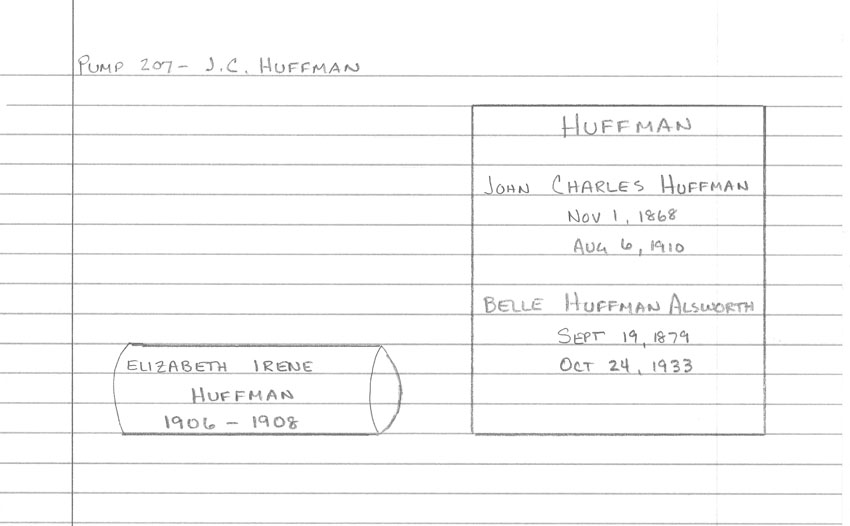 PUMP 207 - J.C. HUFFMAN
HUFFMAN
JOHN CHARLES HUFFMAN
NOV 1, 1868
AUG 6, 1910
BELLE HUFFMAN ALSWORTH
SEPT 19, 1879
OCT 24, 1933
ELIZABETH IRENE
HUFFMAN
1906 - 1908